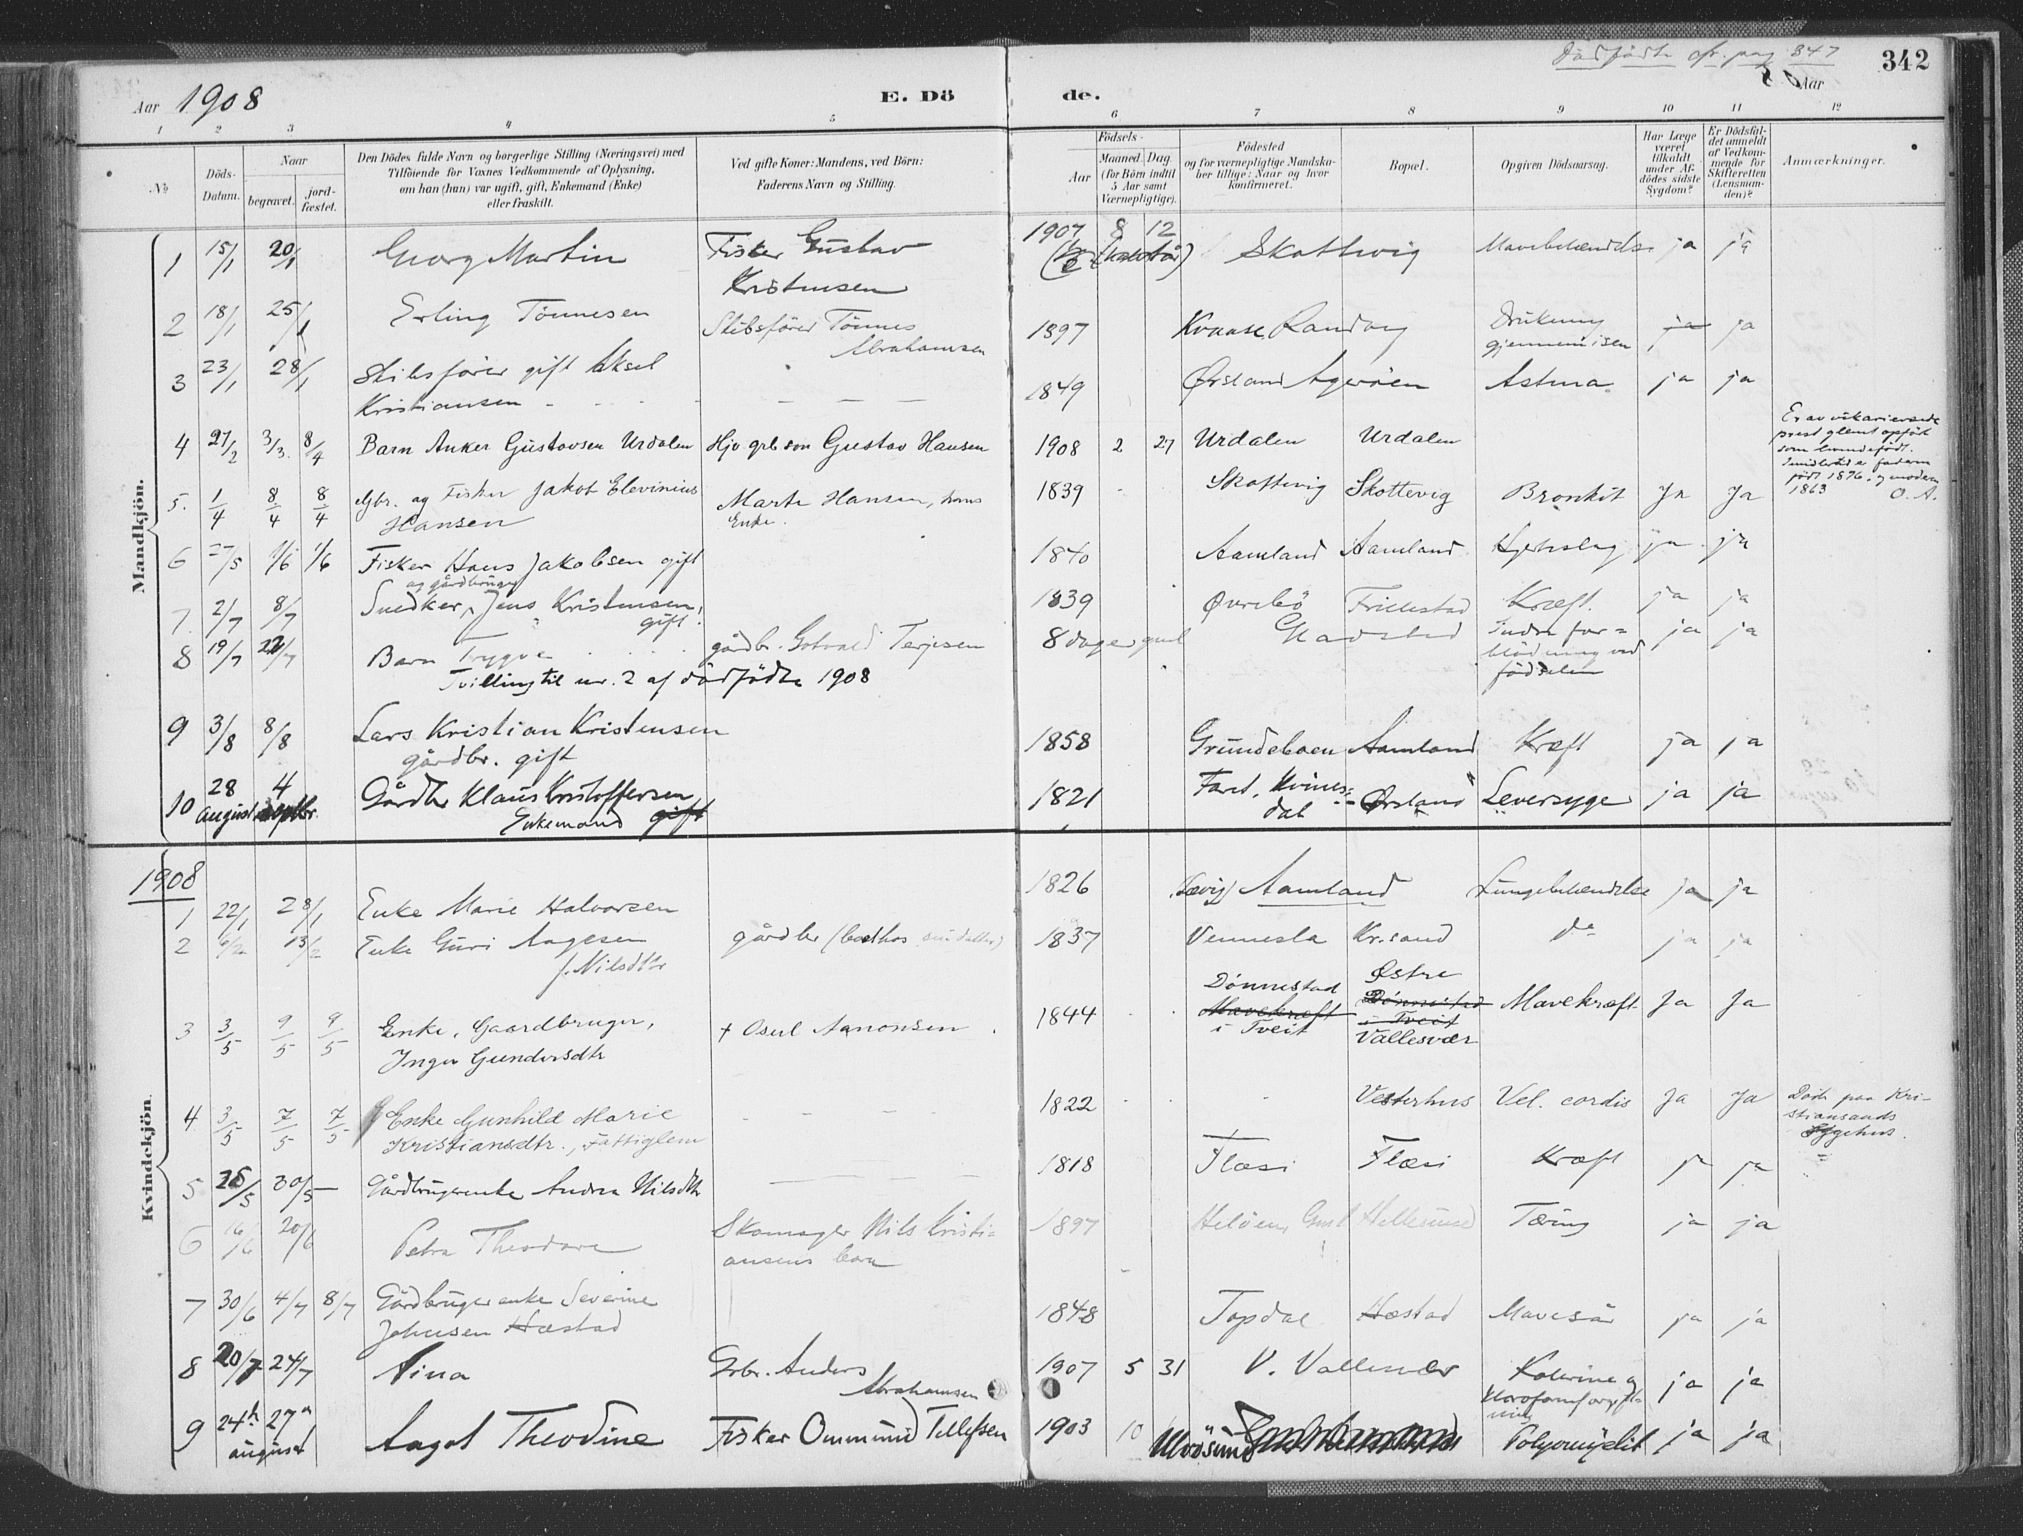 Dødfødte cfr. pag 347
342
Aar 1908
E. Dö
de.
Aar
1 2 3 4 5 6 7 8 9 10 11 12
No
Döds-Datum.
Naar
begravet.
jord-fæstet.
Den Dödes fulde Navn og borgerlige Stilling (Næringsvei) med
Tilföiende for Voxnes Vedkommende af Oplysning,
om han (hun) var ugift, gift, Enkemand (Enke)
eller fraskilt.
Ved gifte Koner: Mandens, ved Börn:
Faderens Navn og Stilling.
Födsels-
Aar
Maaned. Dag.
(for Börn indtil
5 Aar samt
Værnepligtige).
Födested
og for værnepligtige Mandska-
ber tillige: Naar og hvor
konfirmeret.
Bopæl.
Opgiven Dödsaarsag.
Har Læge
været
tilkaldt
under Af-
dödes sidste
Sygdom?
Er Dödsfal-
det anmeldt
af Vedkom-
mende for
Skifteretten
(Lensman-
den)?
Anmærkninger.
Mandkjön.
1 15/1 20/1 Georg Martin Fisker Gustav 1907 8 12 Skottevig ja ja
Kristensen
2 18/1 25/1 Erling Tönnesen Skibsförer Tönnes 1897 Kvaase, Randøy Drukning ja ja
Abrahamsen gjennem isen
3 23/1 28/1 Skibsförer gift Aksel 1849 Ørsland Agerøen Astma ja ja
Kristiansen
4 27/2 3/3 8/4 Barn Anker Gustavsen Urdalen Hjv. grb. søn Gustav Hansen 1908 2 27 Urdalen Urdalen
Er av vikarierende
prest glemt opført
som levendefødt.
født 1876, og moderen
1863 O. A.
5. 1/4 8/4 8/4 Gbr. og Fisker Jakob Elevinius Marte Hansen, hans 1839 Skottevig Skottevig Bronkit Ja Ja
Hansen Enke.
6 27/5 1/6 1/6 Fisker Hans Jakobsen gift 1840 Aamland Aamland Hjerteslag ja ja
og gårdbruger
7 2/7 8/7 Snedker, Jens Kristensen, 1839 Øvrebö Trillestad Kræft. ja ja
gift
8 19/7 22/7 Barn Trygve gårdbr. Gotvald Terjesen 8 dager gml Indre for=
ja ja
blödning ved
Tvilling til nr. 2 af dödfödte 1908 födselen
9 3/8 8/8 Lars Kristian Kristensen 1858 Grundeboen Aamland Kræft ja ja
gårdbr. gift
10 28 august 4 septbr. Gårdbr Klaus Kristoffersen 1821 Kvines-
dal Ørsland Leversyge ja ja
Enkemand gift
1908
Kvindekjön.
1 22/1 28/1 Enke Marie Halvorsen 1826 Aamland Lungebetændelse ja ja
2 6/2 13/2 Enke Guri Aagesen gårdbr (bosat hos sin datter) 1837 Vennesla Kr.sand do ja ja
f. Nilsdtr
3 3/5 9/5 9/5 Enke, Gaardbruger, † Osul Aanonsen 1844 Dönnestad Mavekræft i Tveit Østre Dönnestad i Tveit Vallesvær Mavekræft Ja Ja
Inger Gundersdtr
4 3/5 7/5 7/5 Enke Gunhild Marie 1822 Vesterhus Vel. cordis Ja Ja Död paa Kri-
stiansands
Sygehus.
Kristiansdtr., Fattiglem
5 25/5 30/5 Gårdbrugerenke Andrea Nilsdtr 1818 Flæsi Flæsi Kræft ja ja
6 16/6 20/6 Petra Theodore Skomager Nils Kristi- 1897 Helöen, Hellesund Tæring ja ja
ansens barn
7 30/6 4/7 8/7 Gårdbrugerenke Severine 1848 Topdal Hæstad Mavesår ja ja
Johnsen Hæstad
8 20/7 24/7 Nina Grbr. Anders 1907 5 31 V. Vallesvær Kolerine og ja ja
Abrahamsen
9 24de august 27de Aagot Theodine Fisker Ommund Tellefsen 1903 10 Ulvösund Polyomyelit ja ja